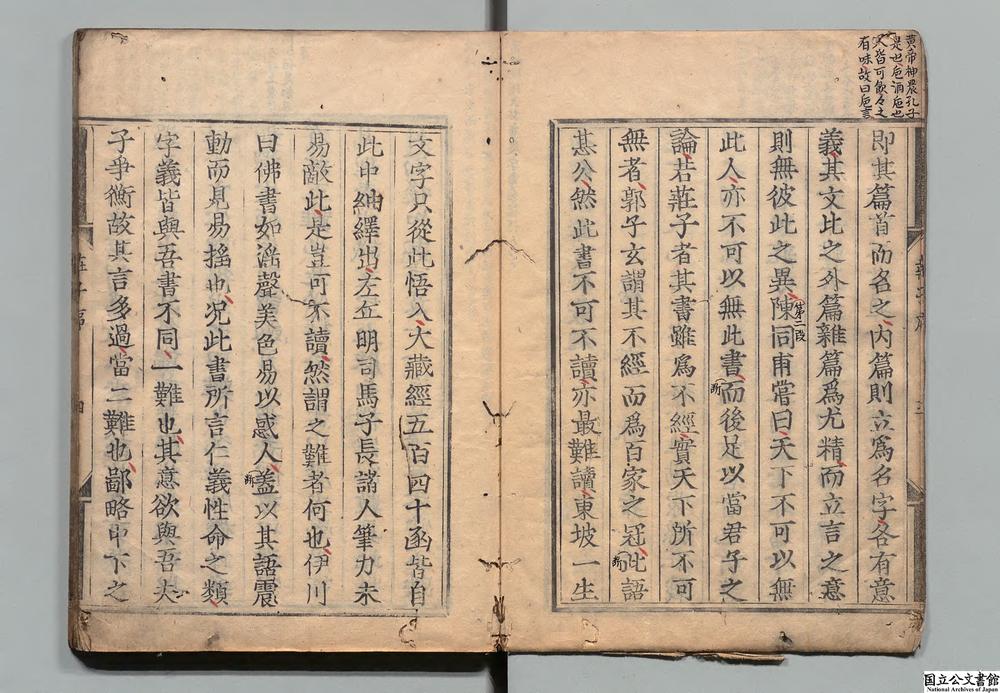 黄帝神農孔子
是也卮酒卮也
人皆可飲々之
有味故曰卮言
即其篇首而名之内篇則立爲名字各有意
義其文比之外篇雜篇爲尤精而立言之意
則無彼此之異陳同甫嘗曰天下不可以無
此人亦不可以無此書而後足以當君子之
論若莊子者其書雖爲不經實天下所不可
無者郭子玄謂其不經而爲百家之冠此語
甚公然此書不可不讀亦最難讀東坡一生
文字只從此悟入大藏經五百四十函皆自
此中紬繹出左丘明司馬子長諸人筆力未
易敵此是豈可不讀然謂之難者何也伊川
曰佛書如淫聲美色易以惑人盖以其語震
動而見易搖也况此書所言仁義性命之類
字義皆與吾書不同一難也其意欲與吾夫
子爭衡故其言多過當二難也鄙略中下之
国立公文書館
National Archives of Japan